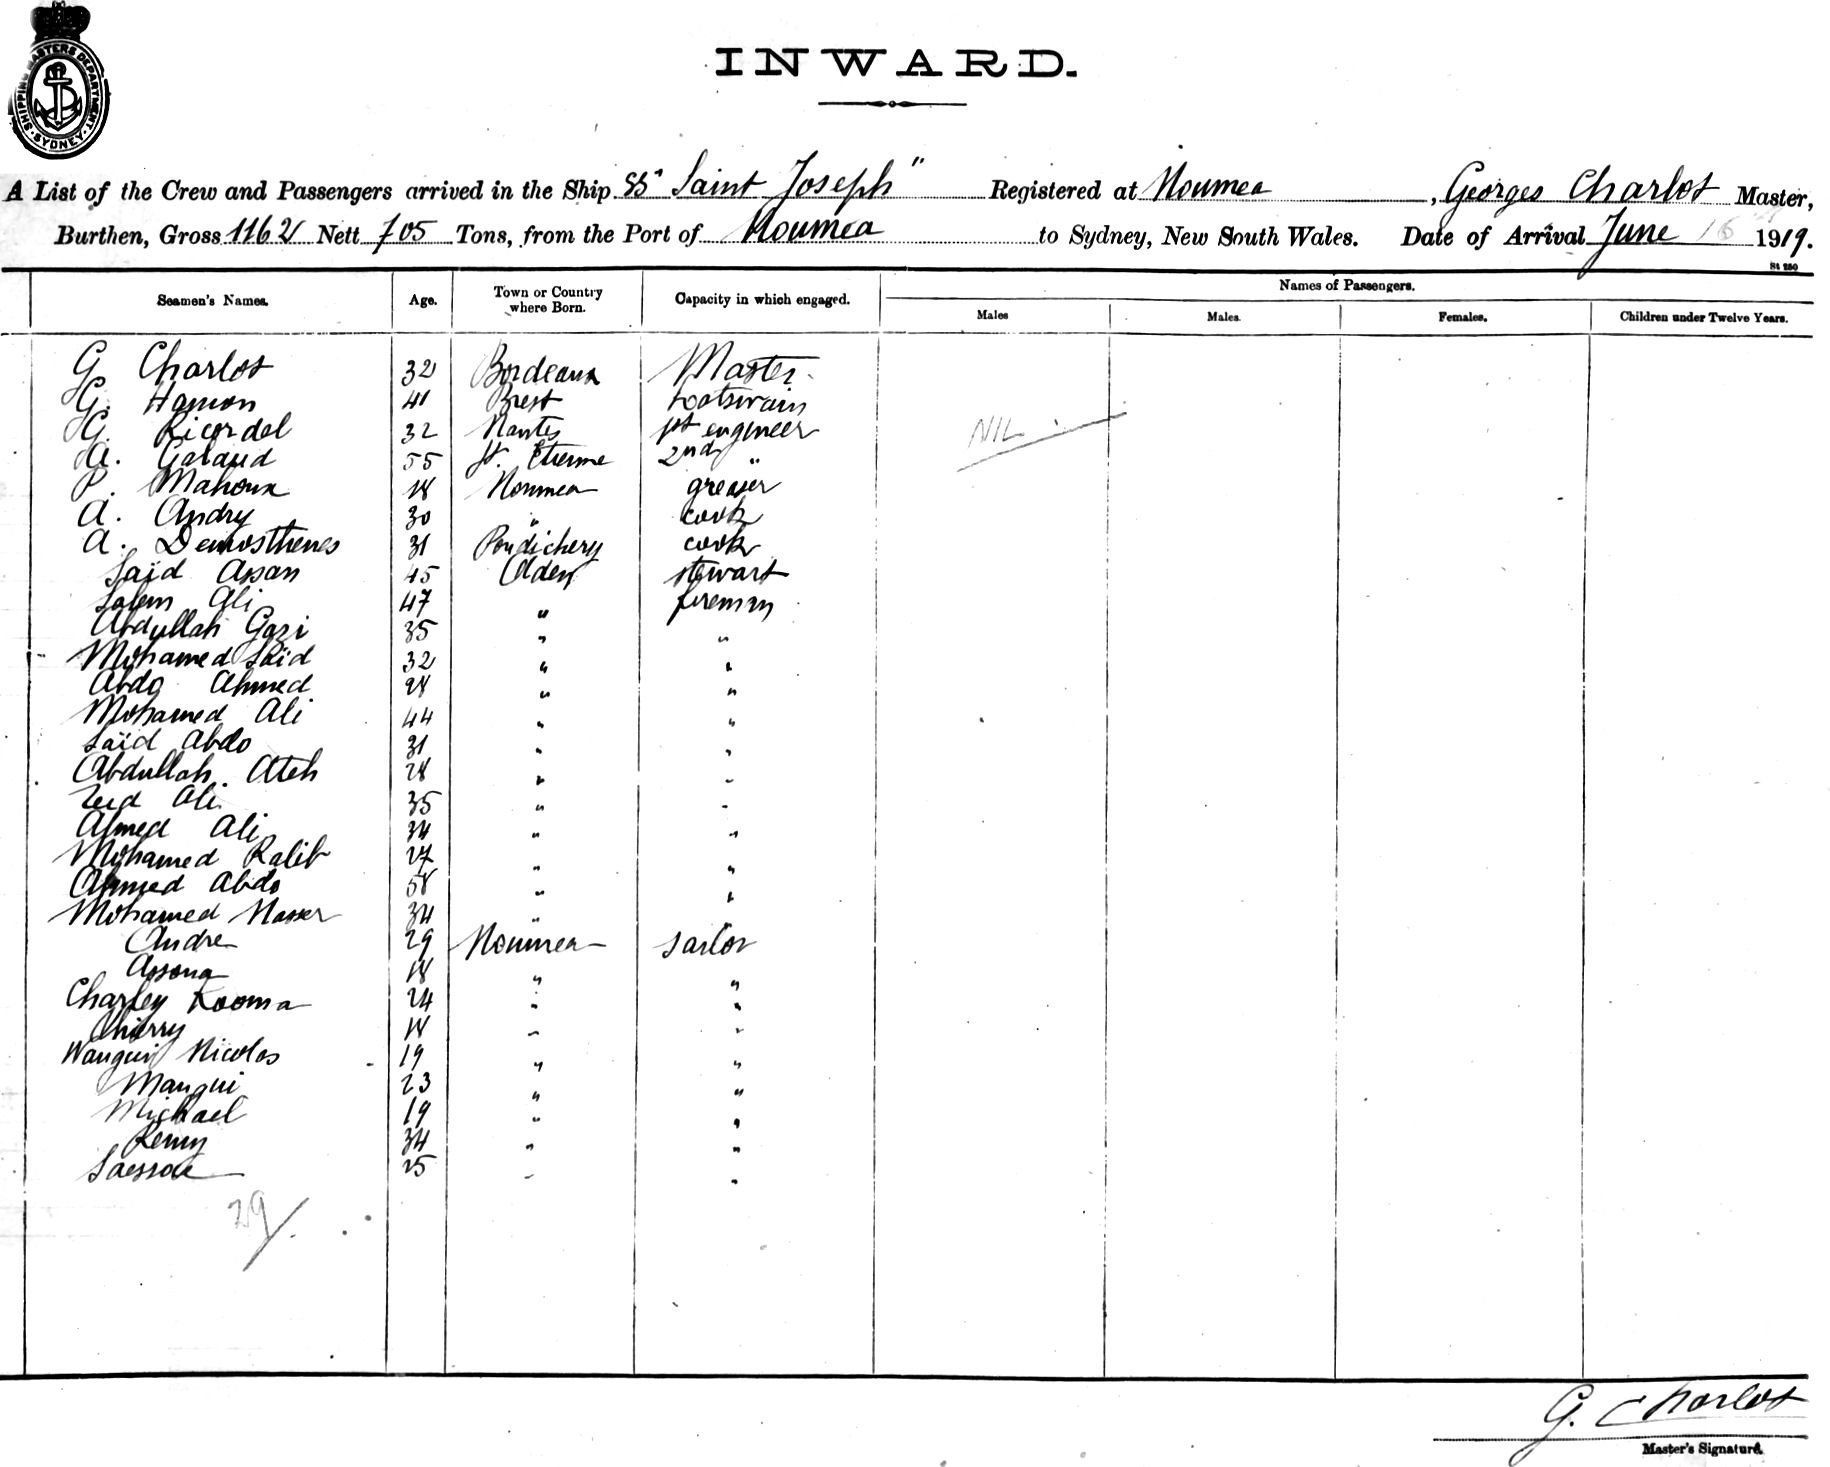 SHIPPING MASTERS DEPARTMENT
SYDNEY
INWARD.
A List of the Crew and Passengers arrived in the Ship SS "Saint Joseph" Registered at Noumea, Georges Charlot Master,
Burthen, Gross 1162 Nett 705 Tons, from the Port of Noumea to Sydney, New South Wales. Date of Arrival June 16 1919.
St 250
Seamen's Names. Age. Town or Country where Born. Capacity in which engaged. Names of Passengers.
Males Males. Females. Children under Twelve Years.
G Charlot 32 Bordeaux Master
G. Hamon 41 Brest bootswain
G. Ricordel 32 Nantes 1st engineer
A. Galaud 55 St. Etienne 2nd "
P. Mahoux 18 Noumea greaser
A. Andry 30 " cook
A. Demosthenes 31 Pondichery cook
Saïd Assan 45 Aden stewart
Salem Ali 47 " fireman
Abdullah Gazi 35 " "
Mohamed Saïd 32 " "
Abdo Ahmed 28 " "
Mohamed Ali 44 " "
Saïd Abdo 31 " "
Abdullah Ateh 28 " "
Zeid Ali 35 " "
Ahmed Ali 34 " "
Mohamed Kalib 27 " "
Ahmed Abdo 58 " "
Mohamed Nasser 34 " "
Andre 29 Noumea sailor
Assona 18 " "
Charley Kooma 24 " "
Thierry 18 " "
Wangui Nicolas 19 " "
Mangui 23 " "
Michael 19 " "
Remy 34 " "
Saessoe 25 " "
NIL
29
G. Charlot
Master's Signature